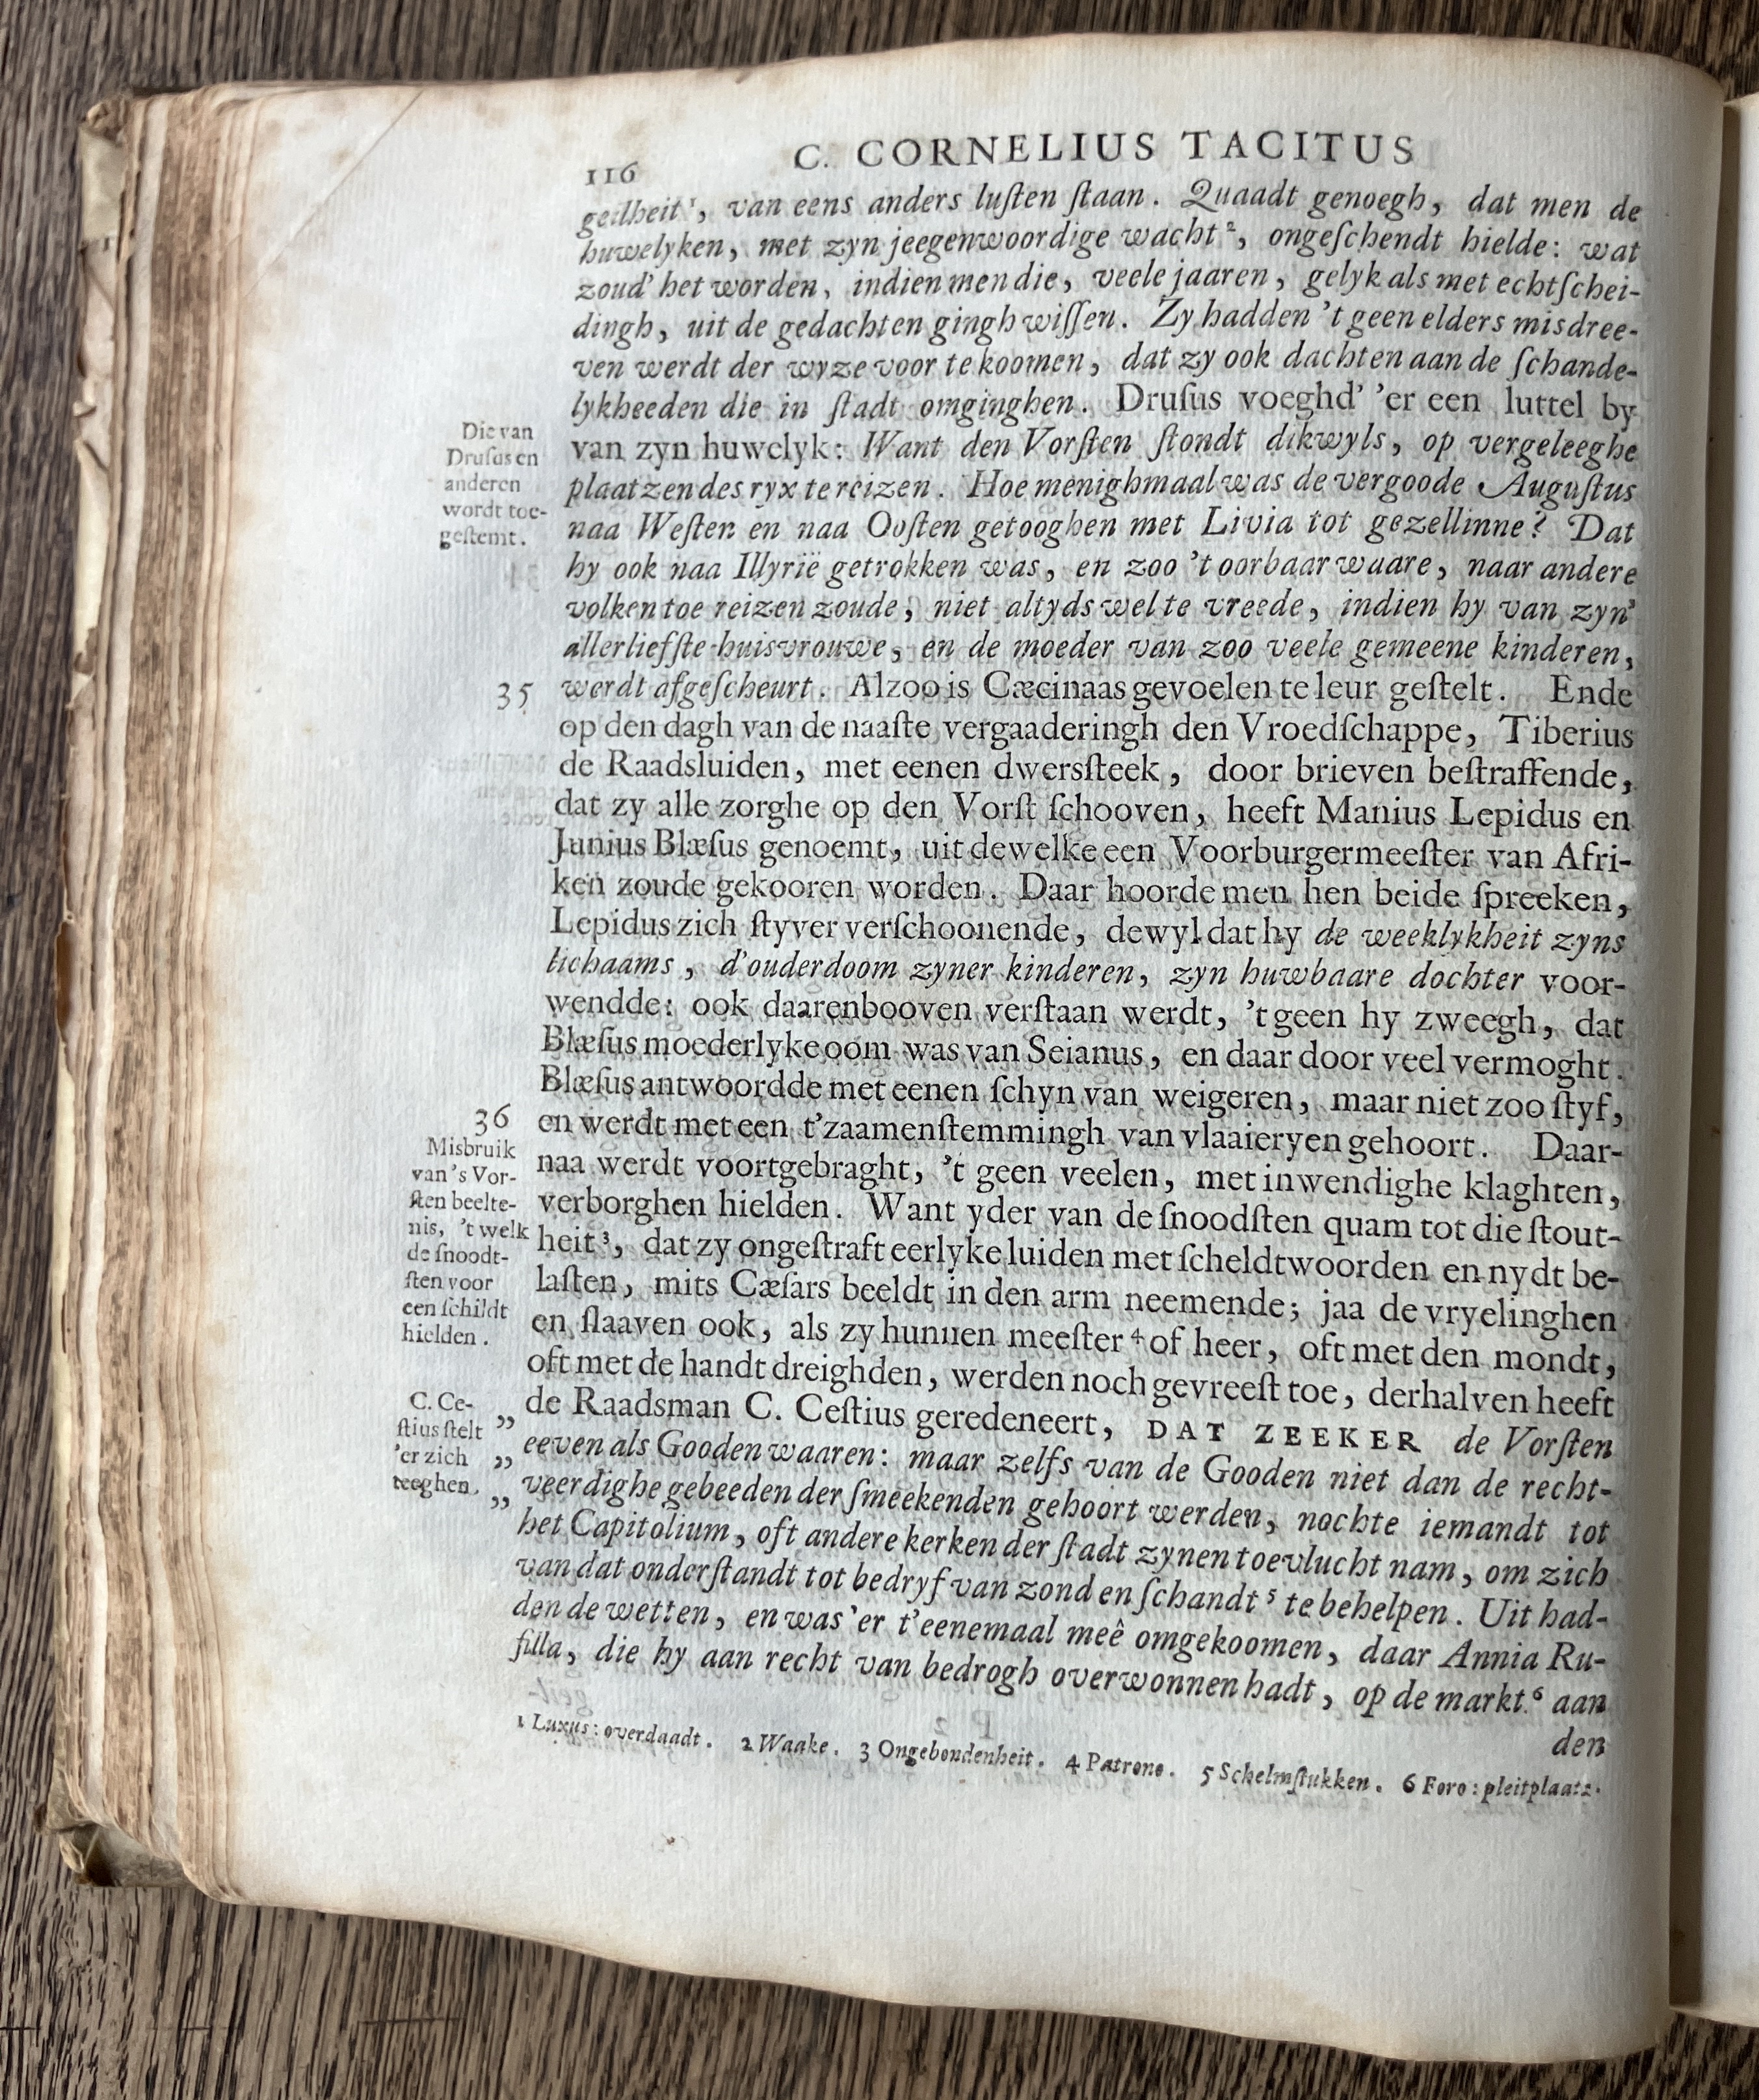 116
C. CORNELIUS TACITUS
geilheit¹, van eens anders luſten ſtaan. Quaadt genoegh, dat men de
huwelyken, met zyn jeegenwoordige wacht², ongeſchendt hielde: wat
zoud' het worden, indien men die, veele jaaren, gelyk als met echtſchei-
dingh, uit de gedachten gingh wiſſen. Zy hadden 't geen elders misdree-
ven werdt der wyze voor te koomen, dat zy ook dachten aan de ſchande-
lykheeden die in ſtadt omginghen. Druſus voeghd' 'er een luttel by
van zyn huwelyk: Want den Vorſten ſtondt dikwyls, op vergeleeghe
plaatzen des ryx te reizen. Hoe menighmaal was de vergoode Auguſtus
naa Weſten en naa Ooſten getooghen met Livia tot gezellinne? Dat
hy ook naa Illyrië getrokken was, en zoo 't oorbaar waare, naar andere
volken toe reizen zoude, niet altyds wel te vreede, indien hy van zyn'
allerliefſte huisvrouwe, en de moeder van zoo veele gemeene kinderen,
werdt afgeſcheurt. Alzoo is Cæcinaas gevoelen te leur geſtelt. Ende
op den dagh van de naaſte vergaaderingh den Vroedſchappe, Tiberius
de Raadsluiden, met eenen dwersſteek, door brieven beſtraffende,
dat zy alle zorghe op den Vorſt ſchooven, heeft Manius Lepidus en
Junius Blæſus genoemt, uit dewelke een Voorburgermeeſter van Afri-
ken zoude gekooren worden. Daar hoorde men hen beide ſpreeken,
Lepidus zich ſtyver verſchoonende, dewyl dat hy de weeklykheit zyns
lichaams, d'ouderdoom zyner kinderen, zyn huwbaare dochter voor-
wendde: ook daarenbooven verſtaan werdt, 't geen hy zweegh, dat
Blæſus moederlyke oom was van Seianus, en daar door veel vermoght.
Blæſus antwoordde met eenen ſchyn van weigeren, maar niet zoo ſtyf,
en werdt met een t'zaamenſtemmingh van vlaaieryen gehoort. Daar-
naa werdt voortgebraght, 't geen veelen, met inwendighe klaghten,
verborghen hielden. Want yder van de ſnoodſten quam tot die ſtout-
heit³, dat zy ongeſtraft eerlyke luiden met ſcheldtwoorden en nydt be-
laſten, mits Cæſars beeldt in den arm neemende; jaa de vryelinghen
en ſlaaven ook, als zy hunnen meeſter⁴ of heer, oft met den mondt,
oft met de handt dreighden, werden noch gevreeſt toe, derhalven heeft
de Raadsman C. Ceſtius geredeneert, DAT ZEEKER de Vorſten
„ eeven als Gooden waaren: maar zelfs van de Gooden niet dan de recht-
„ veerdighe gebeeden der ſmeekenden gehoort werden, nochte iemandt tot
„ het Capitolium, oft andere kerken der ſtadt zynen toevlucht nam, om zich
van dat onderſtandt tot bedryf van zond en ſchandt⁵ te behelpen. Uit had-
den de wetten, en was 'er t'eenemaal meê omgekoomen, daar Annia Ru-
filla, die hy aan recht van bedrogh overwonnen hadt, op de markt⁶ aan
den
Die van
Druſus en
anderen
wordt toe-
geſtemt.
35
36
Misbruik
van 's Vor-
ſten beelte-
nis, 't welk
de ſnoodt-
ſten voor
een ſchildt
hielden.
C. Ce-
ſtius ſtelt
'er zich
teeghen.
1 Luxus: overdaadt. 2 Waake. 3 Ongebondenheit. 4 Patrono. 5 Schelmſtukken. 6 Foro: pleitplaats.